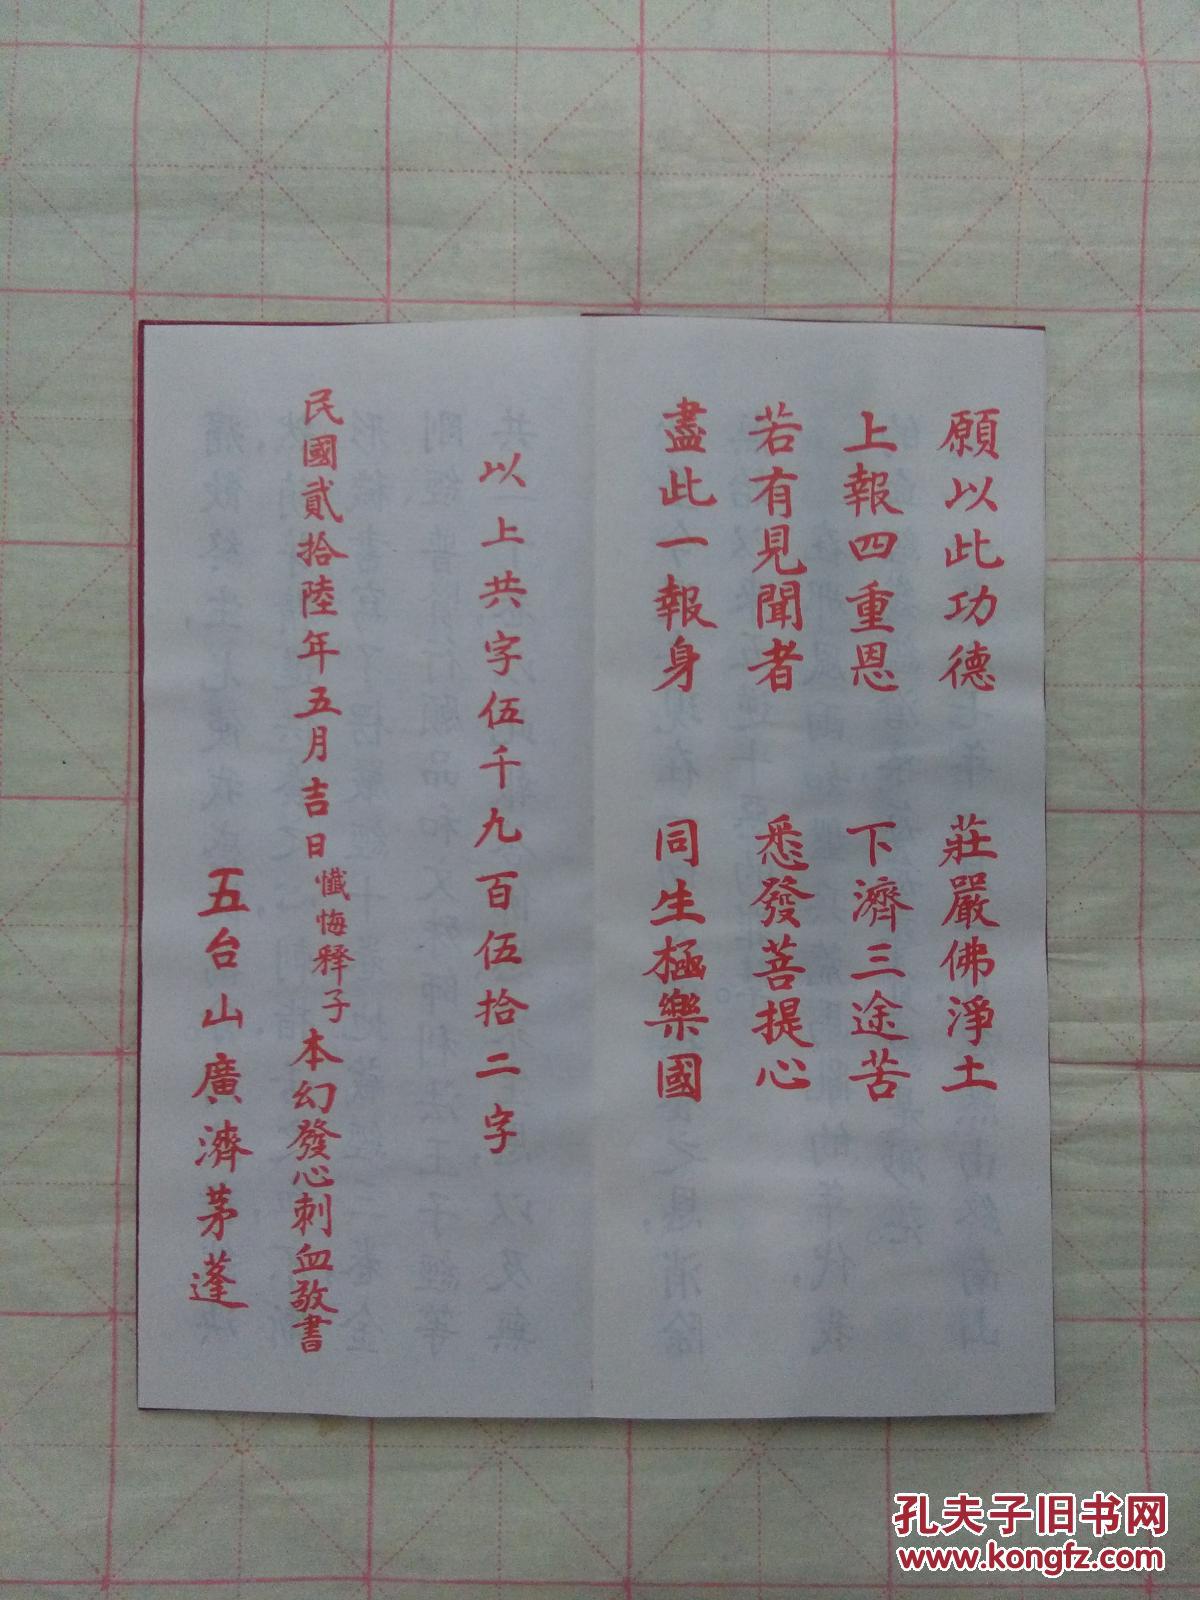 願以此功德 莊嚴佛淨土
上報四重恩 下濟三途苦
若有見聞者 悉發菩提心
盡此一報身 同生極樂國
以上共字伍千九百伍拾二字
民國貳拾陸年五月吉日懺悔釋子本幻發心刺血敬書
五台山廣濟茅蓬
孔夫子旧书网
www.kongfz.com